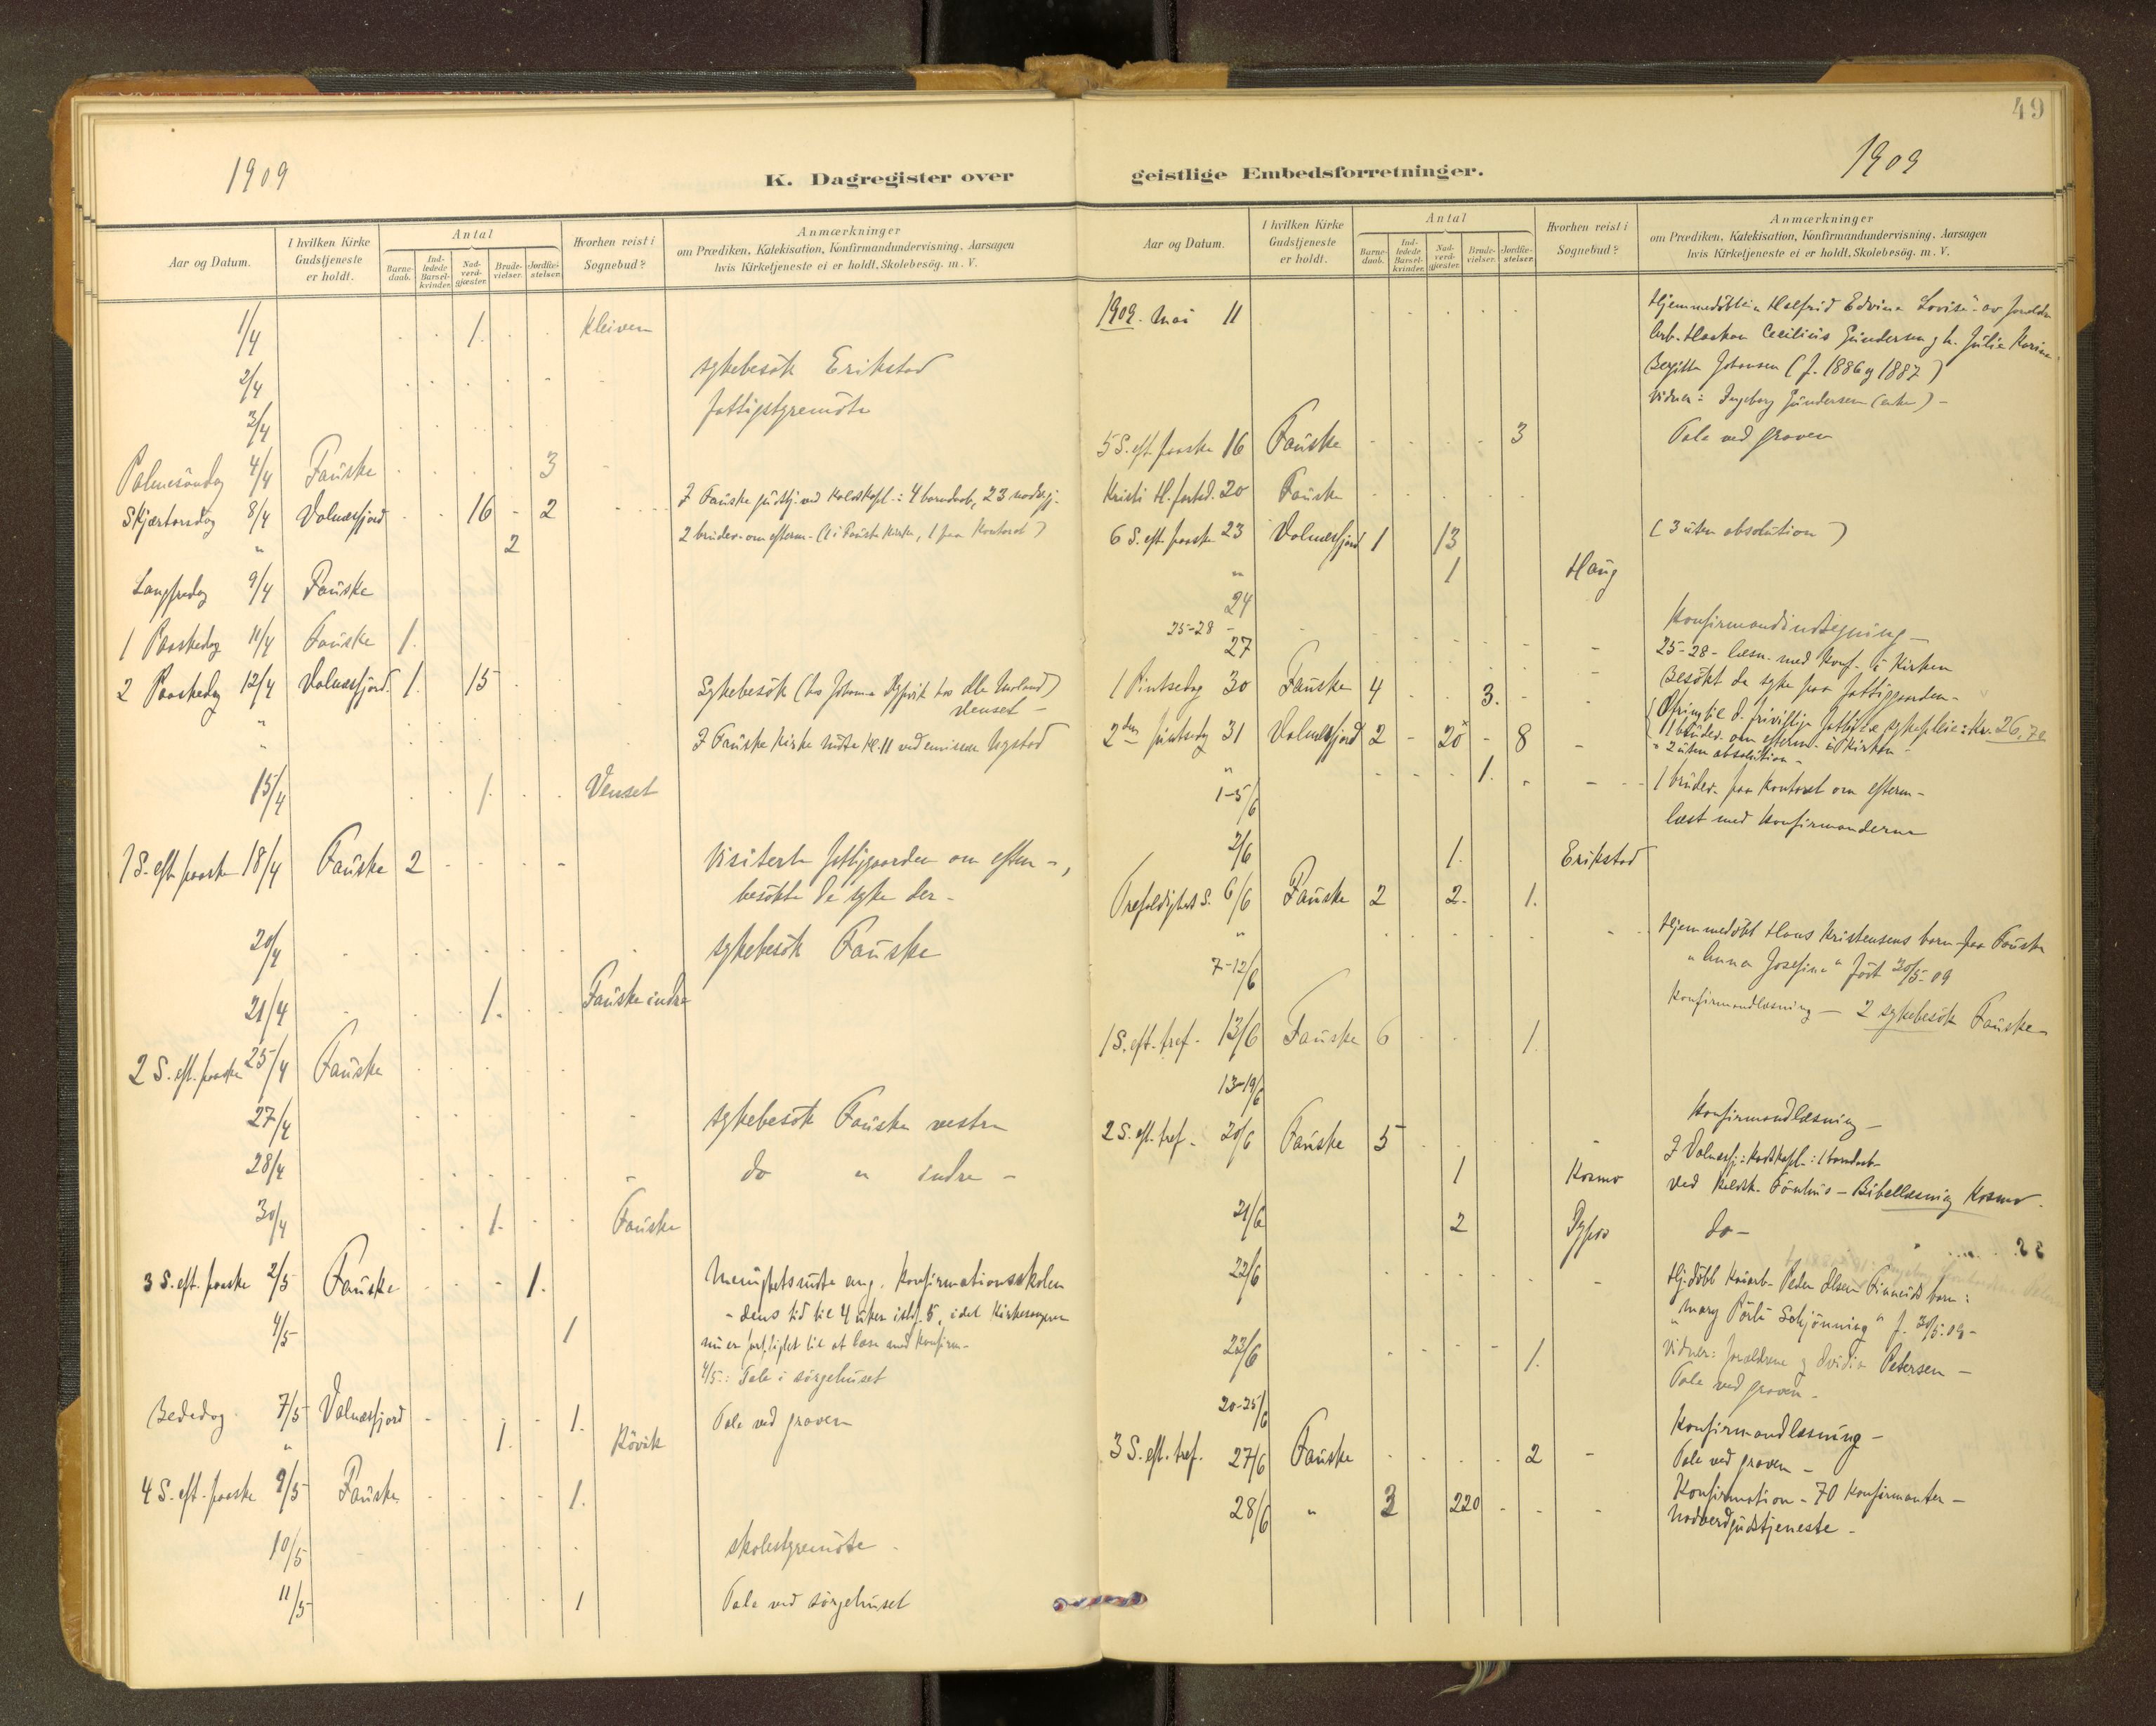 49
1909
K. Dagregister over
Aar og Datum.
I hvilken Kirke Gudstjeneste er holdt.
Antal
Barne-daab.
Ind-ledede Barsel-kvinder.
Nad-verd-gjæster.
Brude-vielser.
Jordfæ-stelser.
Hvorhen reist i Sognebud?
Anmærkninger
om Prædiken, Katekisation, Konfirmandundervisning, Aarsagen
hvis Kirketjeneste ei er holdt, Skolebesög. m. V.
1/4 1. Kleiven
2/4 sykebesök Erikstad
3/4 fattigstyremöte
Palmesöndag 4/4 Fauske 3
Skjærtorsdag 8/4 Valnesfjord 16 - 2 I Fauske gudstj. ved Kaldskapl.: 4 barnedaab, 23 nadvgj.
" 2 2 brudev. om efterm. (1 i Fauske Kirke, 1 paa Kontoret)
Langfredag 9/4 Fauske
1 Paaskedag 11/4 Fauske 1.
2 Paaskedag 12/4 Valnesfjord. 1. 15 Sykebesök (hos Johanna
Venset -
" I Fauske Kirke möte Kl. 11 ved emissær
15/4 1. Venset
1 S. eft. paaske 18/4 Fauske 2 Visiterte fattiggaarden om efterm -,
besökte de syke der -
20/4 sykebesök Fauske
21/4 1. Fauske indre
2 S. eft. paaske 25/4 Fauske
27/4 sykebesök Fauske vestre
28/4 do " indre -
30/4 1. Fauske
3 S. eft. paaske 2/5 Fauske 1. Menighetsmöte ang. Konfirmationsskolen
- dens tid til 4 uker istf. 5, idet Kirkesangeren
4/5 1 nu er forpligtet til at læse med Konfirm-
4/5: Tale i sörgehuset
Bededag 7/5 Valnesfjord 1. Tale ved graven
" 1. Rövik
4 S. eft. paaske 9/5 Fauske 1.
10/5 skolestyremöte
11/5 1 Tale ved sörgehuset
1909
geistlige Embedsforretninger.
Aar og Datum.
I hvilken Kirke Gudstjeneste er holdt.
Antal
Barne-daab.
Ind-ledede Barsel-kvinder.
Nad-verd-gjæster.
Brude-vielser.
Jordfæ-stelser.
Hvorhen reist i Sognebud?
Anmærkninger
om Prædiken, Katekisation, Konfirmandundervisning, Aarsagen
hvis Kirketjeneste ei er holdt, Skolebesög. m. V.
1909. Mai 11 Hjemmedöbt "Halfrid Edvina Lovise" av foreldre
Arb. Haakon Cecilius Gundersen g h. Julie Karine
Bergitte Johansen (f. 1886 og 1887)
Vidner: Ingeborg Gundersen (enke) -
5 S. eft. paaske 16 Fauske 3 Tale ved graven
Kristi H. fartsd. 20 Fauske
6 S. eft. paaske 23 Valnesfjord 1 13 (3 uten absolution)
" 1 Haug
24 Konfirmandindtegning -
25-28 - 25-28 - læsn. med Konf. i Kirken
27 Besökt de syke paa fattiggaarden -
1 Pintsedag 30 Fauske 4 3. Ofring til d. frivillige fattig & sykepleie: Kr. 26,70
11 brudev. om efterm. i Kirken -
2den pintsedag 31 Valnesfjord 2 - 20 - 8 " 2 uten absolution -
" 1. 1 brudev. paa Kontoret om efterm -
1-5/6 læst med Konfirmanderne
2/6 1. Erikstad
Trefoldighets S. 6/6 Fauske 2 2. 1.
" Hjemmedöbt Hans Kristensens barn fra Fauske
"Anna Josefine" född 30/5-09
7-12/6 Konfirmandlæsning - 2 sykebesök Fauske -
1 S. eft. tref. 13/6 Fauske 6 1.
13-19/6 Konfirmandlæsning -
2 S. eft. tref. 20/6 Fauske 5 I Valnesfj: Kaldskapl.: 1 barnedaab
1 Kosmo ved Kaldsk. Fönhus - Bibellæsning Kosmo.
21/6 2 do -
22/6 Hj. döbt Peder Olsen Finneids barn:
"Mary Schjönning" f. 30/5.09 -
Vidner: foreldrene g Ovidia Petersen -
23/6 1. Tale ved graven -
20-25/6 Konfirmandlæsning -
3 S. eft. tref. 27/6 Fauske 2 Tale ved graven -
28/6 " 3 220 Konfirmation - 70 Konfirmanter -
Nadverdgudstjeneste -